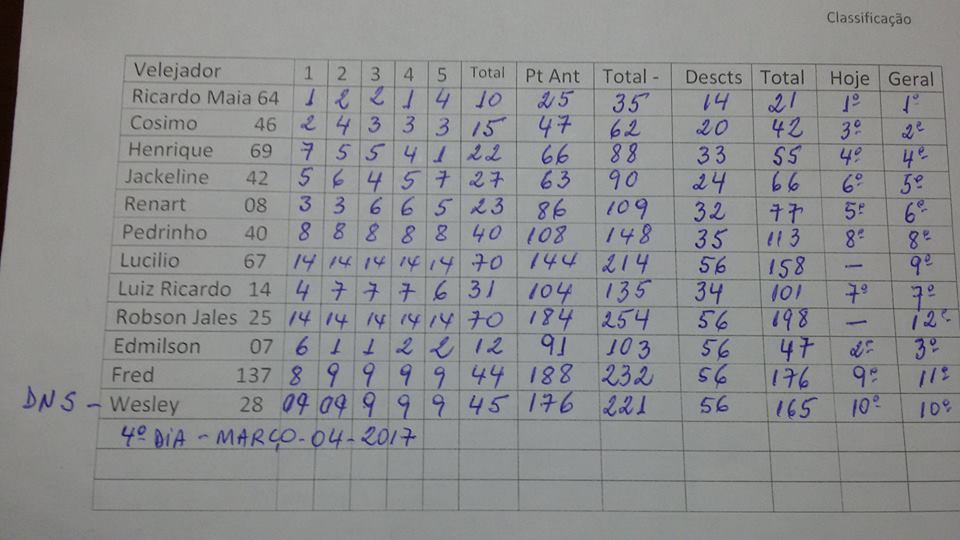 Classificação
Velejador 1 2 3 4 5 Total Pt Ant Total - Descts Total Hoje Geral
Ricardo Maia 64 1 2 2 1 4 10 25 35 14 21 1º 1º
Cosimo 46 2 4 3 3 3 15 47 62 20 42 3º 2º
Henrique 69 7 5 5 4 1 22 66 88 33 55 4º 4º
Jackeline 42 5 6 4 5 7 27 63 90 24 66 6º 5º
Renart 08 3 3 6 6 5 23 86 109 32 77 5º 6º
Pedrinho 40 8 8 8 8 8 40 108 148 35 113 8º 8º
Lucilio 67 14 14 14 14 14 70 144 214 56 158 — 9º
Luiz Ricardo 14 4 7 7 7 6 31 104 135 34 101 7º 7º
Robson Jales 25 14 14 14 14 14 70 184 254 56 198 — 12º
Edmilson 07 6 1 1 2 2 12 91 103 56 47 2º 3º
Fred 137 8 9 9 9 9 44 188 232 56 176 9º 11º
DNS - Wesley 28 09 09 9 9 9 45 176 221 56 165 10º 10º
4º DIA - MARÇO - 04 - 2017